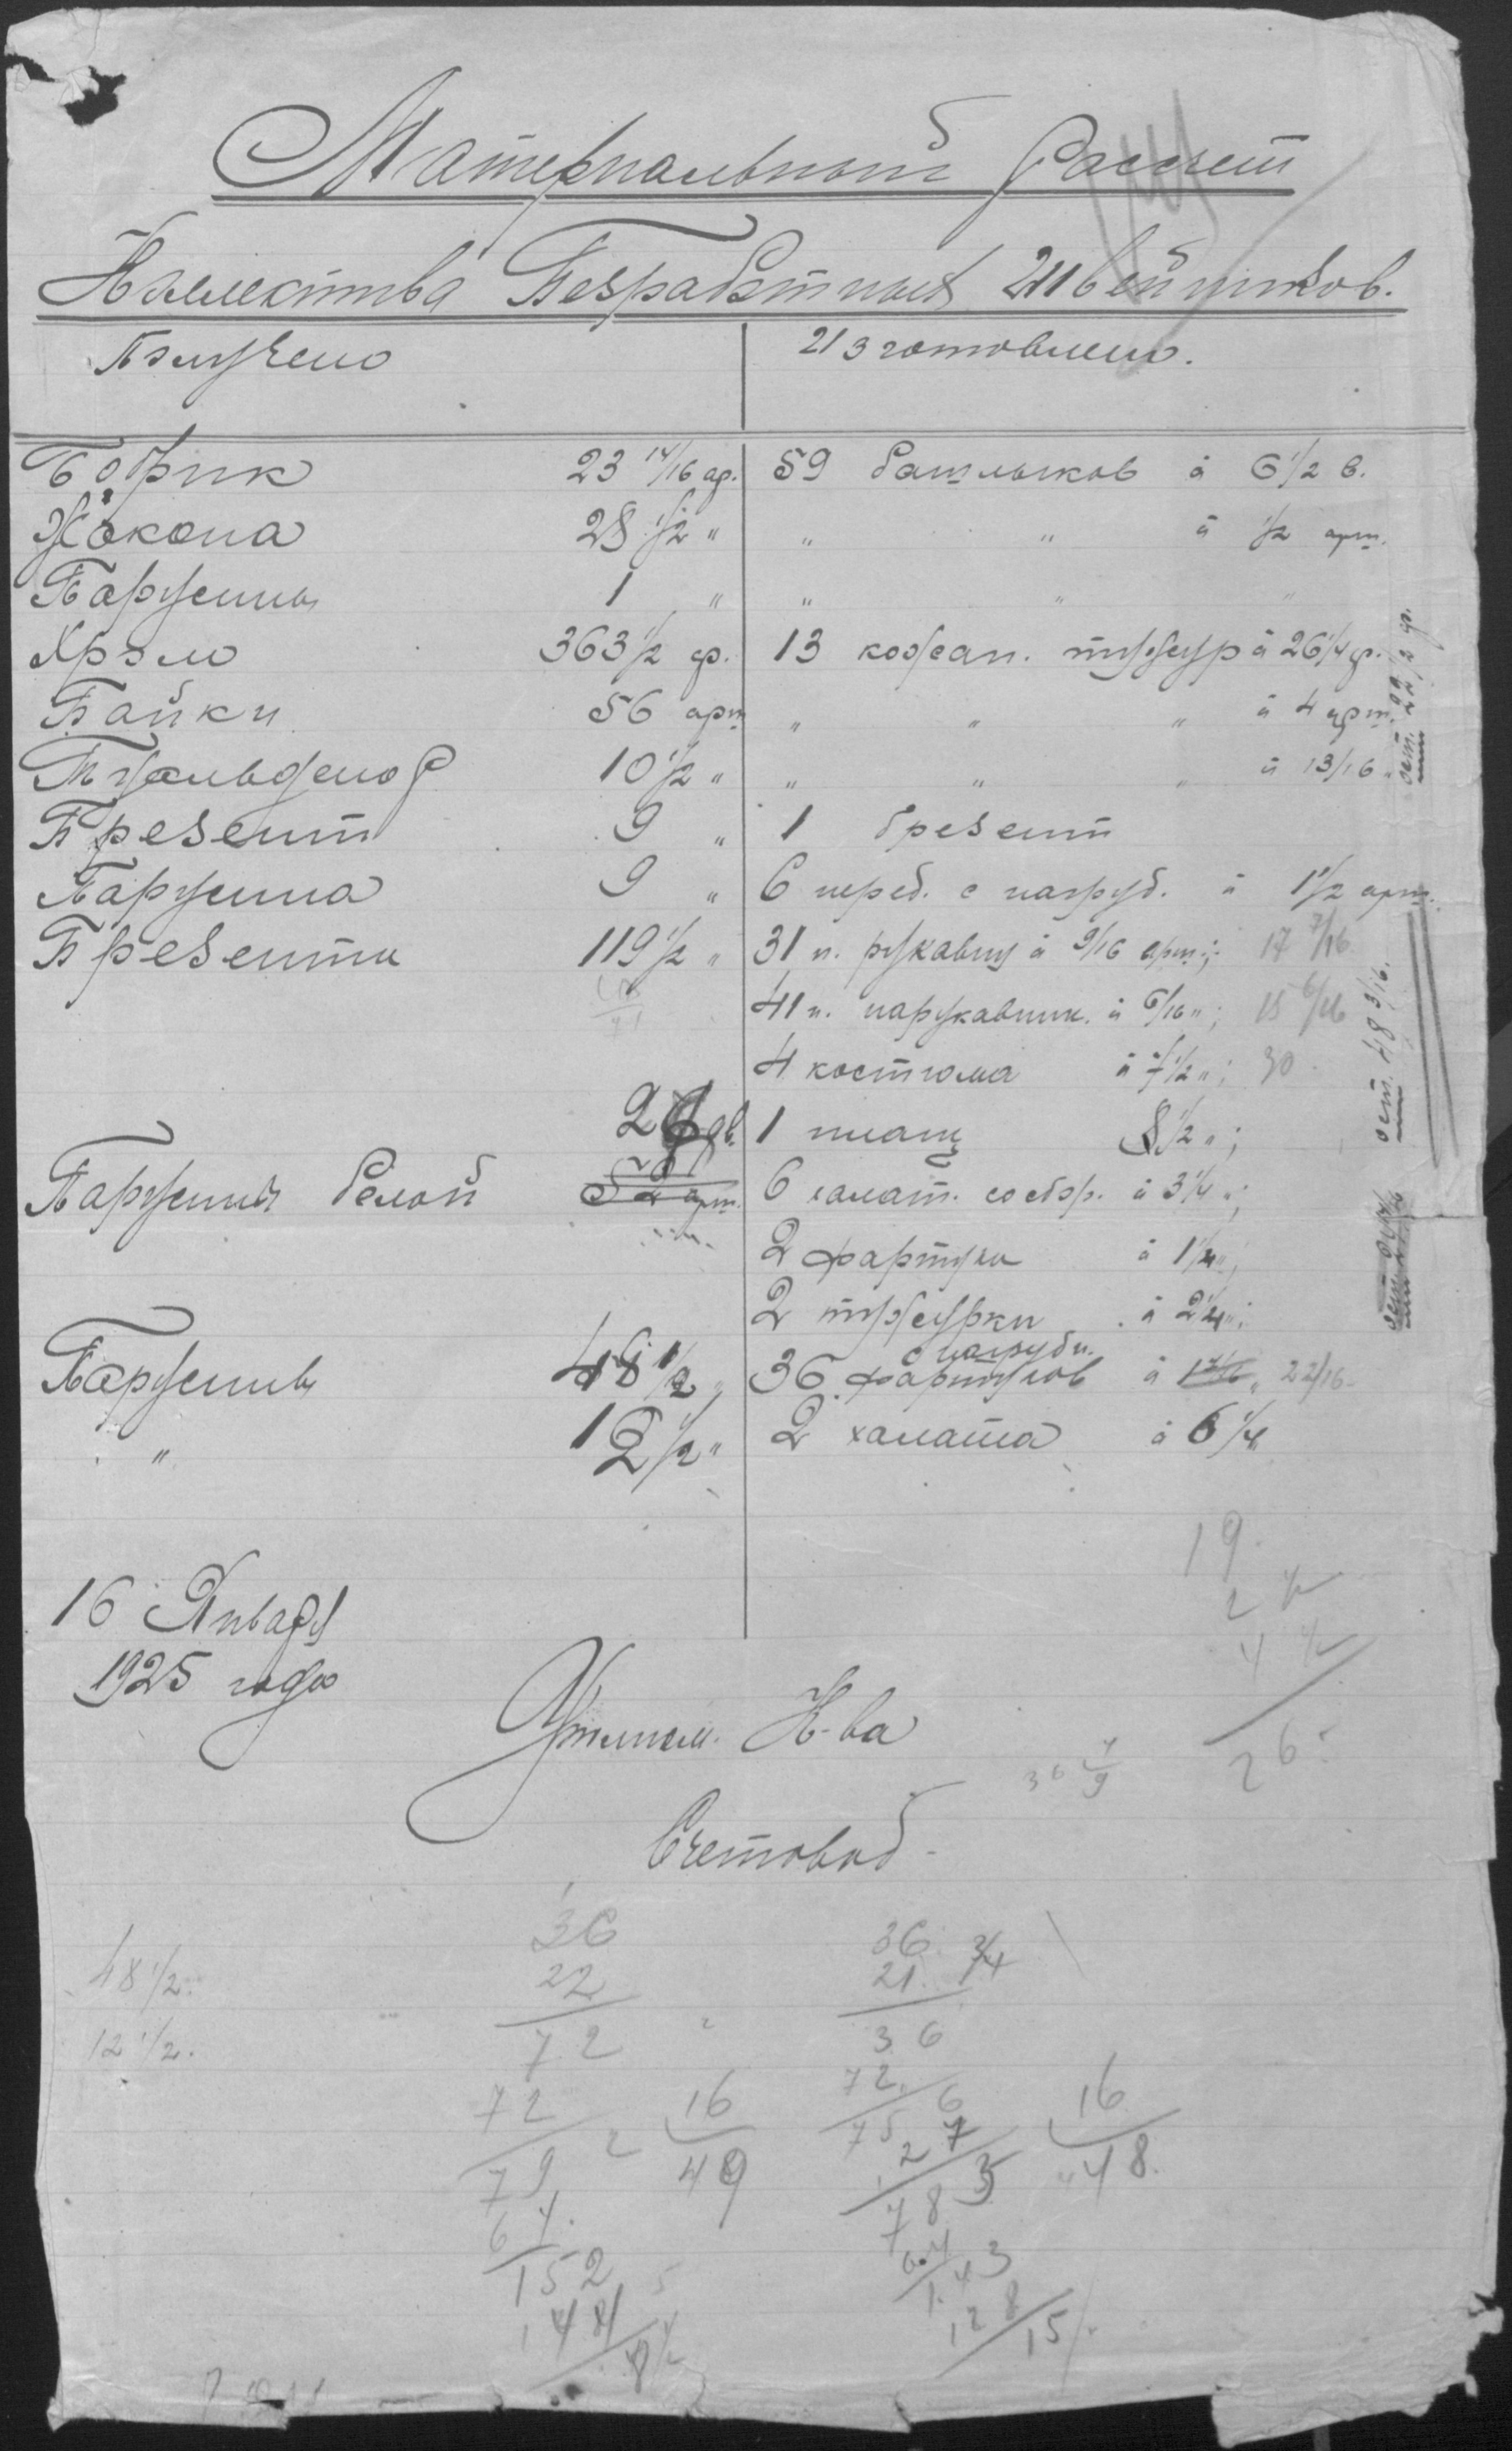 Материальный Рассчет
Коллектива Безработных Швейников.
Получено
Изготовлено.
Бобрик 23 14/16 ар. 59 башлыков à 6 1/2 в.
Кокона 28 1/2 " " " à 1/2 арш.
Парусины 1 " " " "
Хром 363 1/2 ф. 13 кожан. тужур à 26 1/4 ф.
Байки 56 арш " " " à 4 арш.
10 1/2 " " " " à 13/16 "
Брезент 9 " 1 брезент
Парусина 9 " 6 перед. с нагруд. à 1 1/2 арш.
Брезента 119 1/2 " 31 п. рукавиц à 9/16 арш.; 17 7/16
41 п. нарукавник. à 6/16 "; 15 6/16
4 костюма à 7 1/2 "; 30
1 плащ 8 1/2 ";
Парусины белой арш. 6 халат. со сбор. à 3 1/4 ";
2 фартука à 1 1/4 ";
2 тужурки à 2 1/4 ";
с нагрудн.
Парусины 48 1/2 " 36 фартуков à 22/16
" 12 1/2 " 2 халата à 6 1/4 "
ост. 22 1/2 ф.
ост. 48 3/16.
16 Января
1925 года
Уполном. К-ва
Счетовод
19
26
48 1/2
12 1/2
36
22
72
72
79 2
16
49
64
152
144
8
36 3/4
21
36
72
16
48
783
64
143
128
15